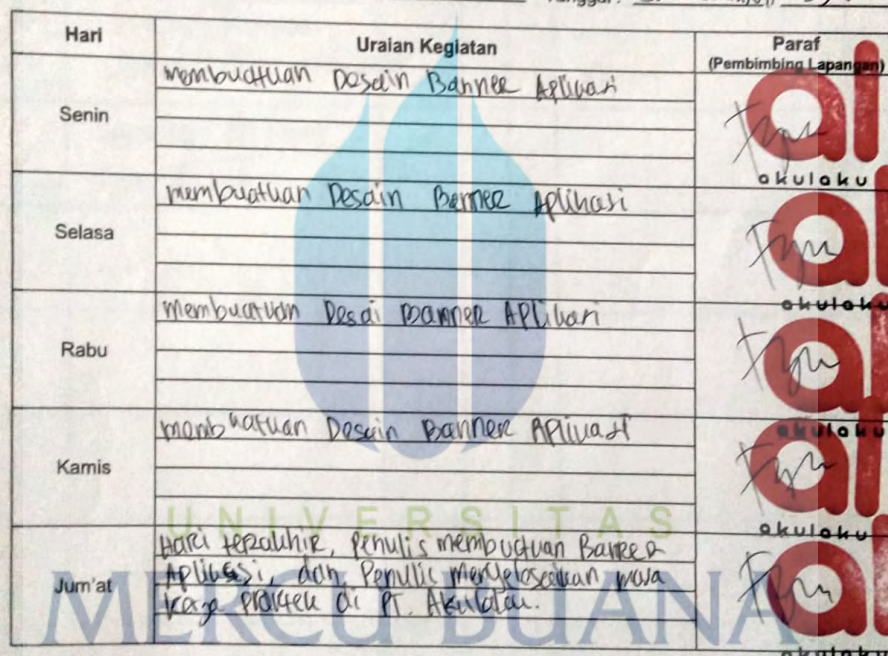 Hari Uraian Kegiatan Paraf
(Pembimbing Lapangan)
Senin membuatkan Desain Banner Aplikasi
akulaku
Selasa membuatkan Desain Benner Aplikasi
akulaku
Rabu membuatkan Desai Banner Aplikasi
akulaku
Kamis membuatkan Desain Banner Aplikasi
akulaku
UNIVERSITAS
Hari terakhir, Penulis membuatkan Banner
Jum'at Aplikasi, dan Penulis menyelesaikan masa
kerja Praktek di PT. Akulaku.
MERCU BUANA
akulaku